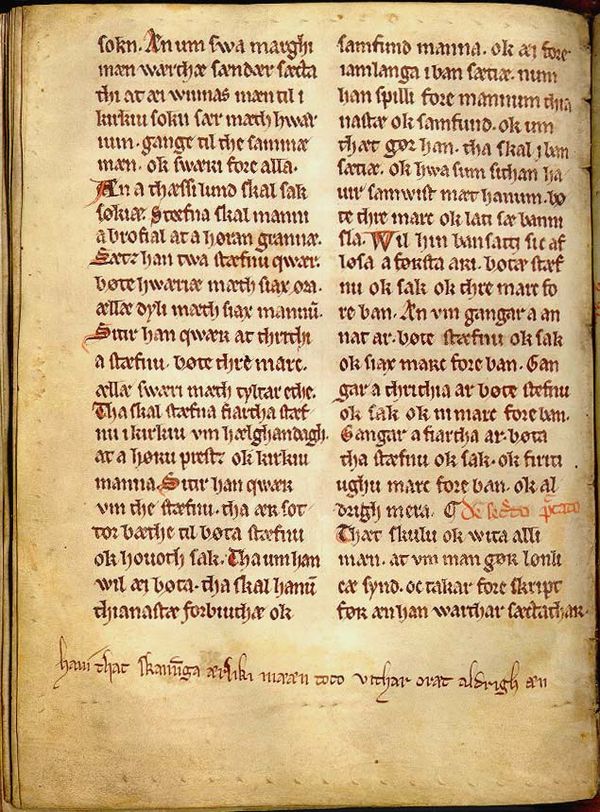 sokn. An um swa marghi
mæn wærthæ sændær sæcta
thi at æi winnas mæn til i
kirkiu soku sær mæth hwar
ium. gange til the sammæ
mæn. ok swæri fore alla.
An a thæssi lund skal sak
søkiæ. Stæfna skal manni
a brofial at a høran grannæ.
Sætr han twa stæfnu qwær.
bøte hwæriæ mæth siax ora.
ællæ dyli mæth siax mannū.
Sitir han qwær at thrithi
a stæfnu. bøte thre mare.
ællæ swæri mæth tyltar ethe.
Tha skal stæfna fiartha stæf
nu i kirkiu vm hælghandagh.
at a høru prestr ok kirkiu
manna. Sitir han qwær
vm the stæfnu. tha ær sot
tor bæthe til bøta stæfnu
ok hovoth sak. Tha um han
wil æi bøta. tha skal hanū
thianastæ forbiuthæ ok
samfund manna. ok æi fore
iamlanga i ban sætiæ. num
han spilli fore mannum thia
nastæ ok samfund. ok um
thæt gør han. tha skal i ban
sætiæ. ok hwa sum sithan ha
uir samwist mæt hanum. bø
te thre mare ok lati sæ banni
sla. Wil hin ban satti sic af
løsa a første ari. bøtæ stæf
nu ok sak ok thre mare fo
re ban. An vm gangar a an
nat ar. bøte stæfnu ok sak
ok siax mare fore ban. Gan
gar a thrithia ar bøte stefnu
ok sak ok ni mare fore ban.
Gangar a fiartha ar. bøta
tha stæfnu ok sak. ok firiti
ughu mare fore ban. ok al
drigh mera. De secreto peccato
Thæt skulu ok wita alli
mæn. at vm man gør lønli
cæ synd. oc takar fore skript
før æn han warthar sæctathar.
haui that skanunga ærliki mææn toco vithar orat aldrigh æn